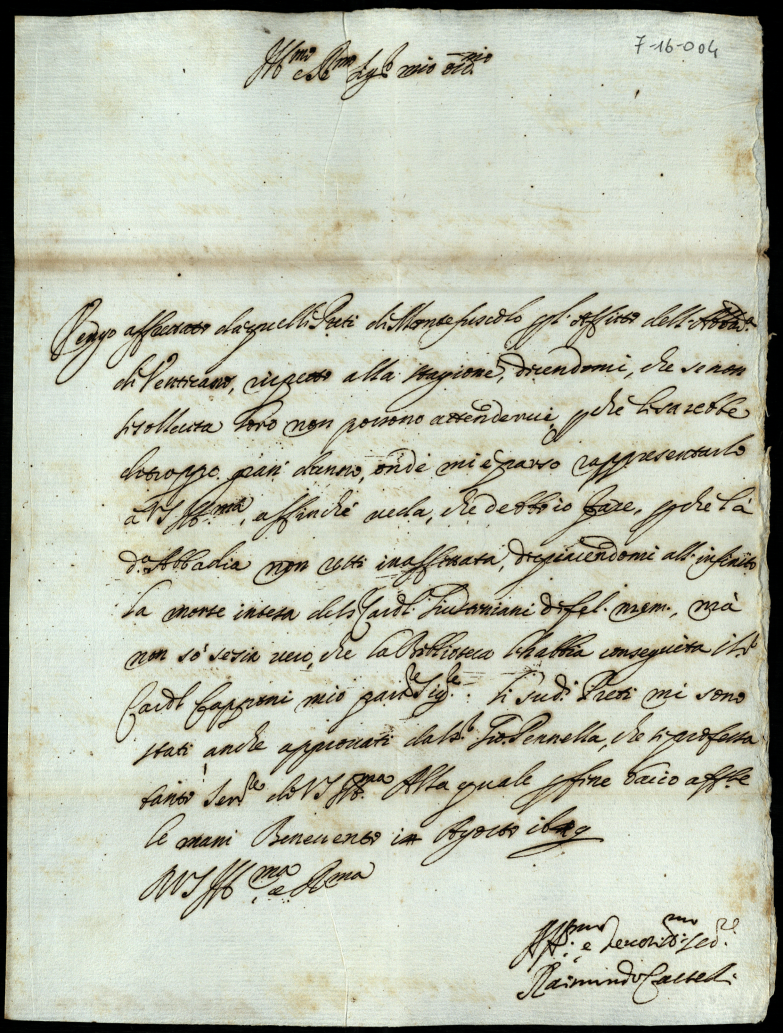 7-16-004
Ill.mo e R.mo Sig.r mio oss.mo
Vengo affrettato da quelli Preti di Montefuscolo p l'affitto dell'Abbad.a
di Venticano, rispetto alla stagione, dicendomi, che se non
si sollecita loro non possono attenderci, p che li sarebbe
di troppo gran danno, onde mi è parso rappresentarlo
à VS Ill.ma, affinché veda, che debbio fare, p che la
d.a Abbadia non resti inaffittata, dispiacendomi all'infinito
la morte intesa del S.r Card.l di fel. mem., mà
non sò se sia vero, che la Biblioteca l'habbia conseguita il S.r
Card.l Capponi mio part.re Sig.re. Li sud.i Preti mi sono
stati anche approvati dal S.r Gio. Pennella, che si professa
tanto Ser.re di VS Ill.ma Alla quale p fine bacio aff.te
le mani Benevento Agosto
D VS Ill.ma e R.ma
Aff.mo e Devotis.mo Ser.re
Raimundo Castell